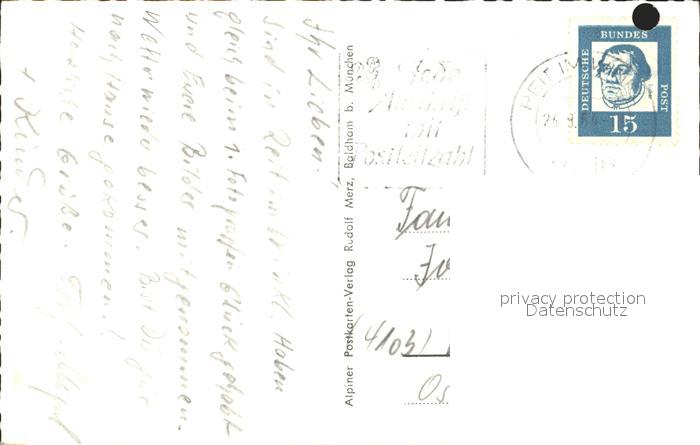 Ihr Lieben,
Sind in Reit im Winkl. Haben
gleich beim 1. Fotografen Glück gehabt
und Eure Bilder mitgenommen.
Wetter wieder besser. Bist Du gut
nach Hause gekommen?
Herzliche Grüße.
+ Kinder.
Alpiner Postkarten-Verlag Rudolf Merz, Baldham b. München
Jede
Anschrift
mit
Postleitzahl
REIT IM
DEUTSCHE
BUNDES
POST
15
Fam
(4103)
Os
privacy protection
Datenschutz